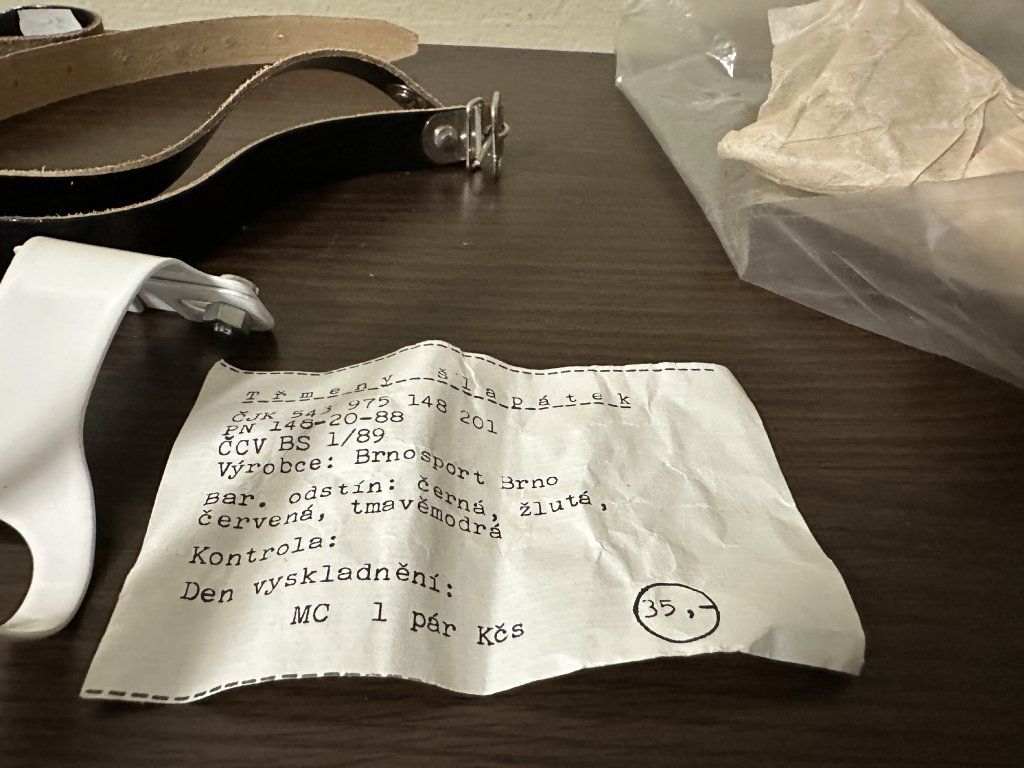 Třmeny šlapátek
ČJK 543 975 148 201
PN 146-20-88
ČCV BS 1/89
Výrobce: Brnosport Brno
Bar. odstín: černá, žlutá,
červená, tmavěmodrá
Kontrola:
Den vyskladnění:
MC 1 pár Kčs 35,-